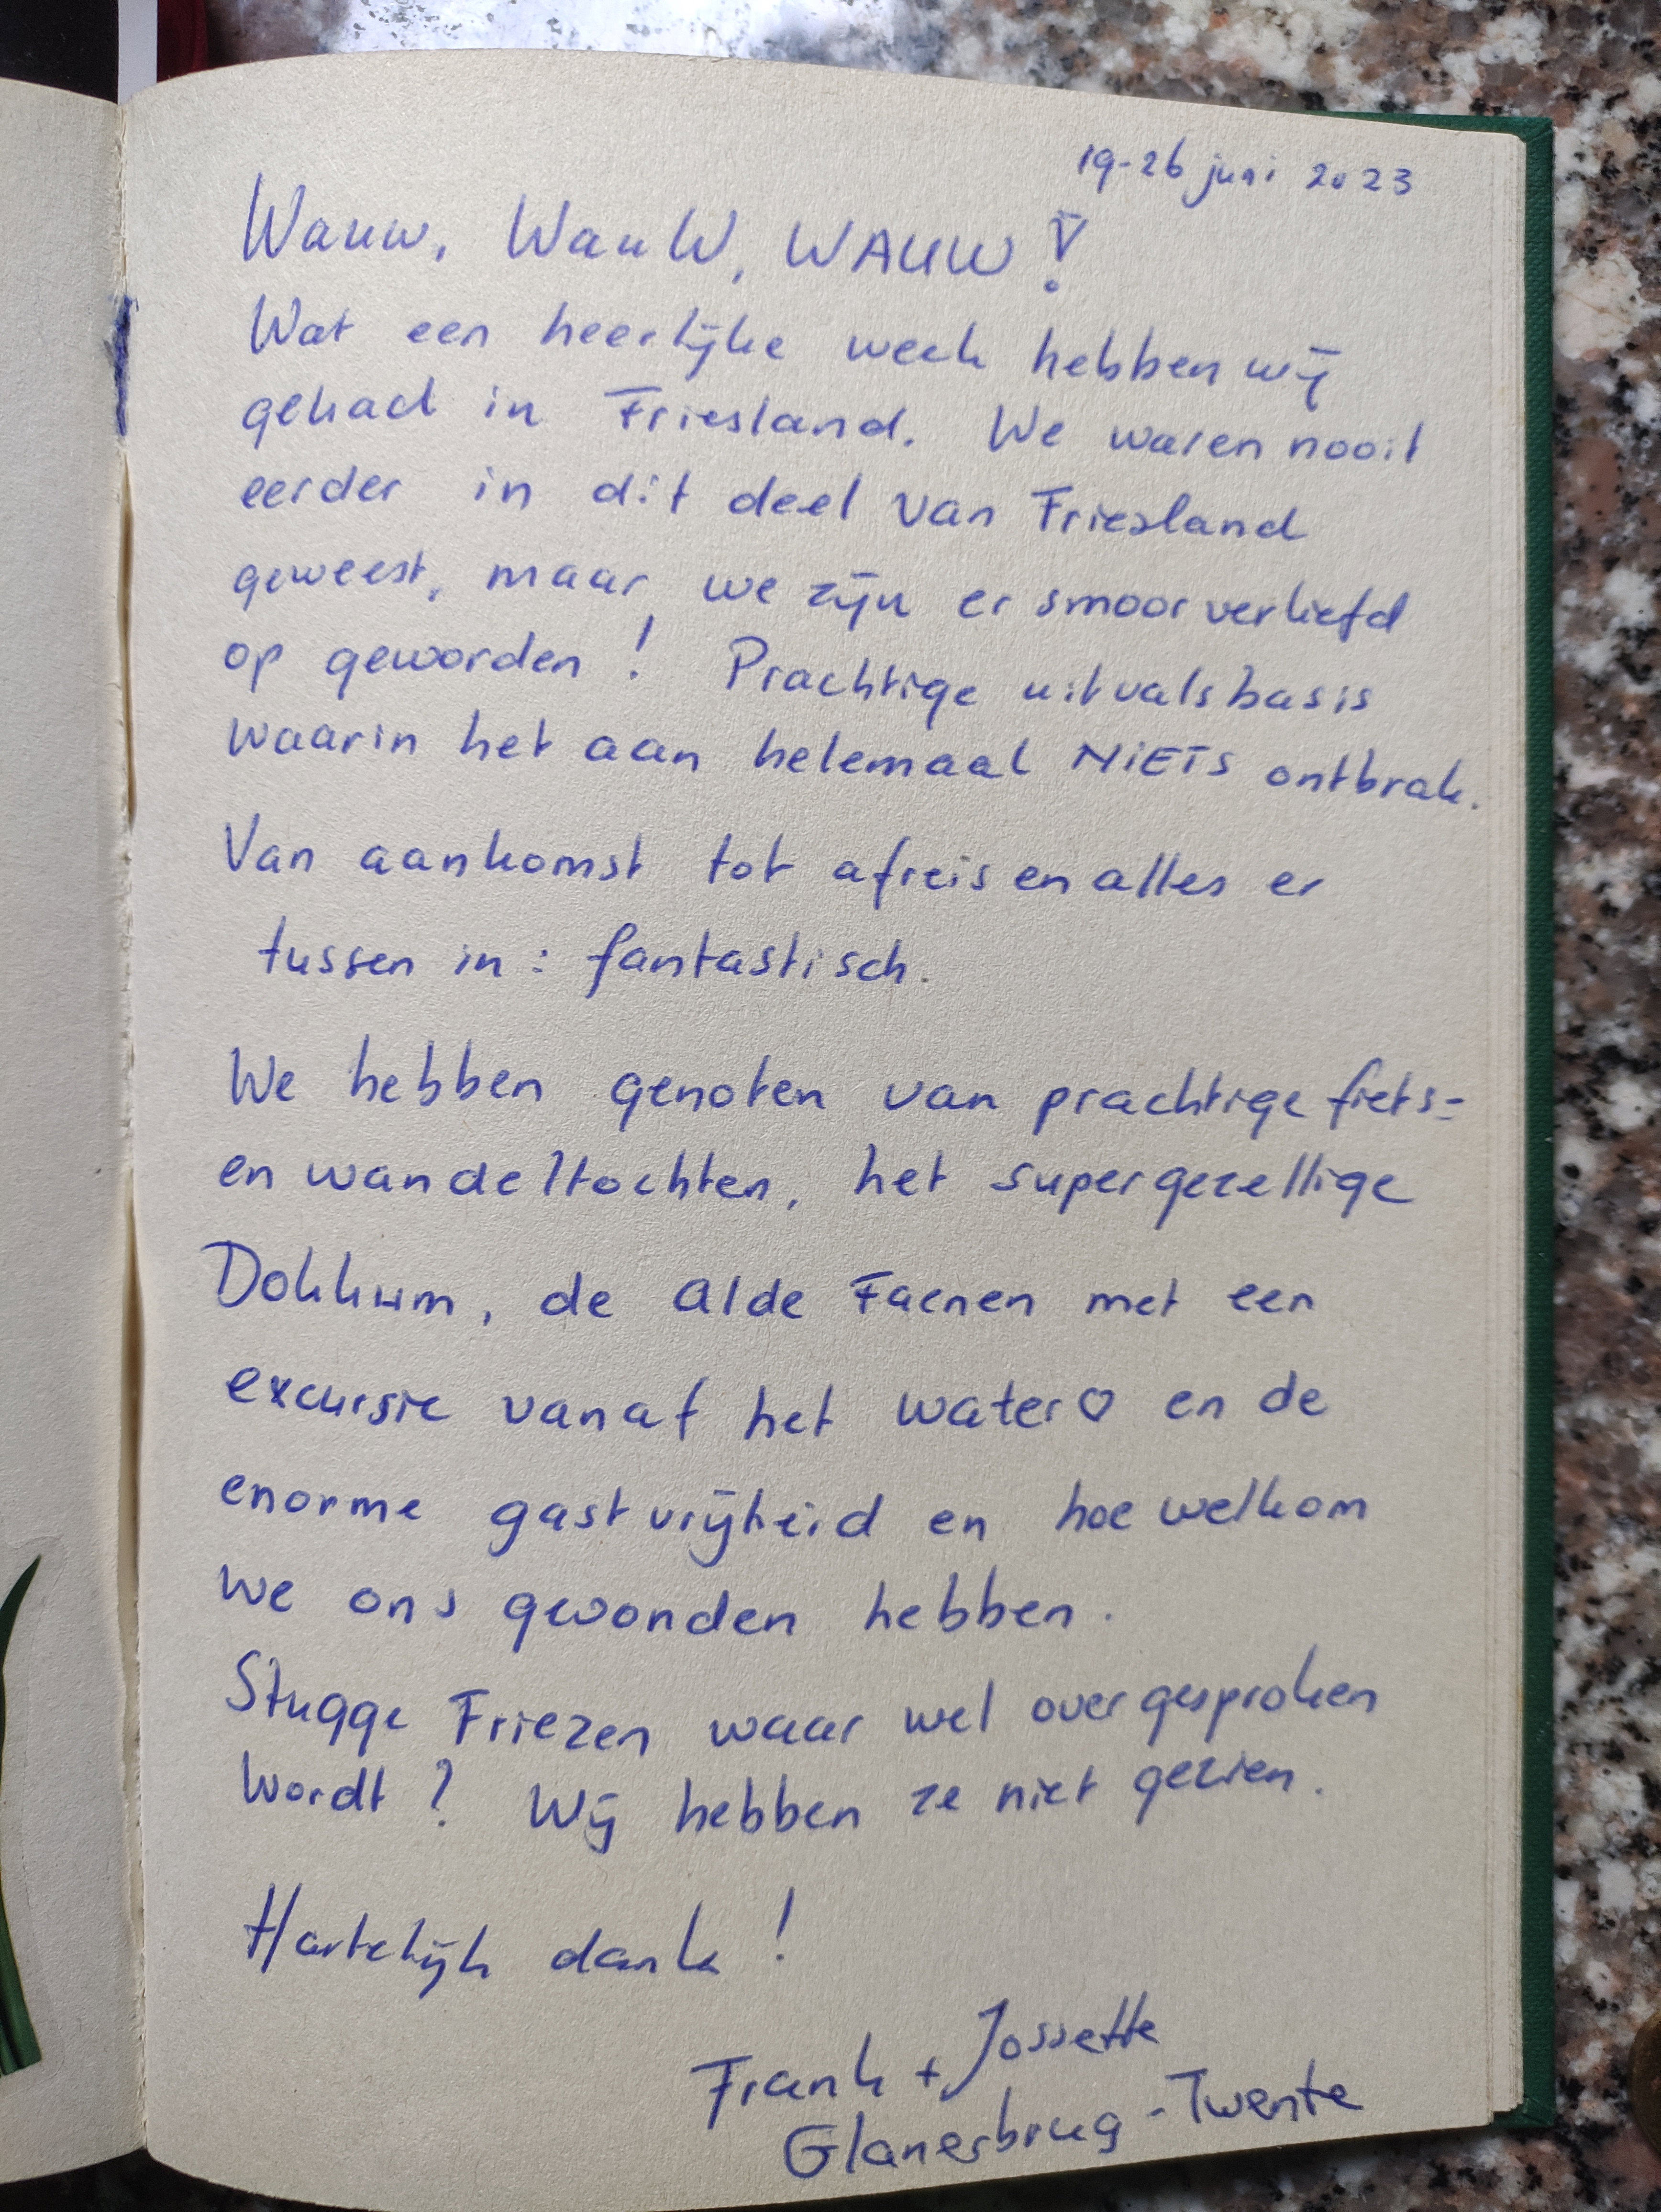 19-26 juni 2023
Wauw, WauW, WAUW!
Wat een heerlijke week hebben wij
gehad in Friesland. We waren nooit
eerder in dit deel van Friesland
geweest, maar we zijn er smoorverliefd
op geworden! Prachtige uitvalsbasis
waarin het aan helemaal NiETS ontbrak.
Van aankomst tot afreis en alles er
tussen in: fantastisch.
We hebben genoten van prachtige fiets-
en wandeltochten, het supergezellige
Dokkum, de Alde Faenen met een
excursie vanaf het water♡ en de
enorme gastvrijheid en hoe welkom
we ons gevonden hebben.
Stugge Friezen waar wel over gesproken
wordt? Wij hebben ze niet gezien.
Hartelijk dank!
Frank + Jossette
Glanerbrug - Twente